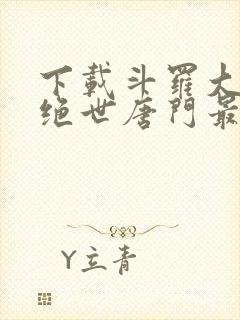 下載斗羅大
绝世唐門最
Y立青